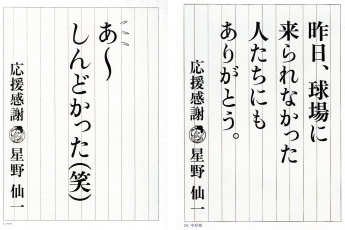 あ〜
しんどかった(笑)
応援感謝 星野 仙一
昨日、球場に
来られなかった
人たちにも
ありがとう。
応援感謝 星野 仙一